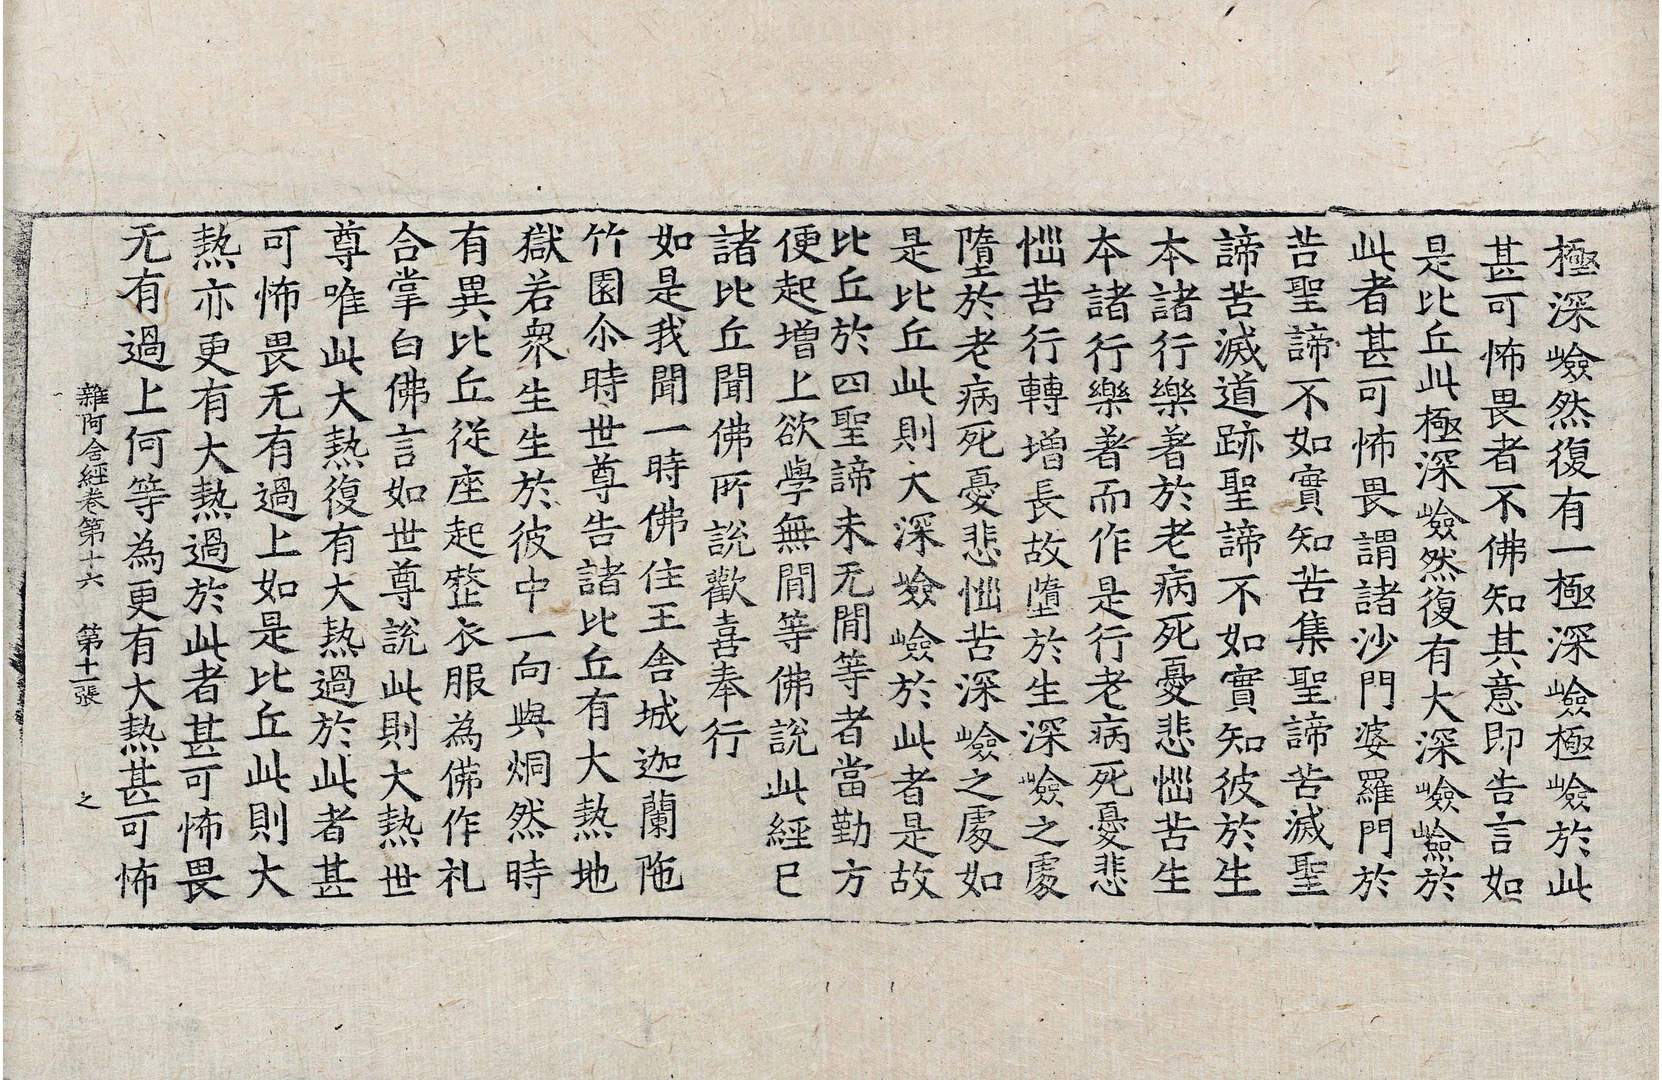 極深嶮然復有一極深嶮極嶮於此
甚可怖畏者不佛知其意即告言如
是比丘此極深嶮然復有大深嶮嶮於
此者甚可怖畏謂諸沙門婆羅門於
苦聖諦不如實知苦集聖諦苦滅聖
諦苦滅道跡聖諦不如實知彼於生
本諸行樂著於老病死憂悲惱苦生
本諸行樂著而作是行老病死憂悲
惱苦行轉增長故墮於生深嶮之處
墮於老病死憂悲惱苦深嶮之處如
是比丘此則大深嶮嶮於此者是故
比丘於四聖諦未无閒等者當勤方
便起增上欲學無閒等佛說此經已
諸比丘聞佛所說歡喜奉行
如是我聞一時佛住王舍城迦蘭陁
竹園尒時世尊告諸比丘有大熱地
獄若衆生生於彼中一向與烔然時
有異比丘從座起整衣服為佛作礼
合掌白佛言如世尊說此則大熱世
尊唯此大熱復有大熱過於此者甚
可怖畏无有過上如是比丘此則大
熱亦更有大熱過於此者甚可怖畏
无有過上何等為更有大熱甚可怖
雜阿含經卷第十六 第十一張 之